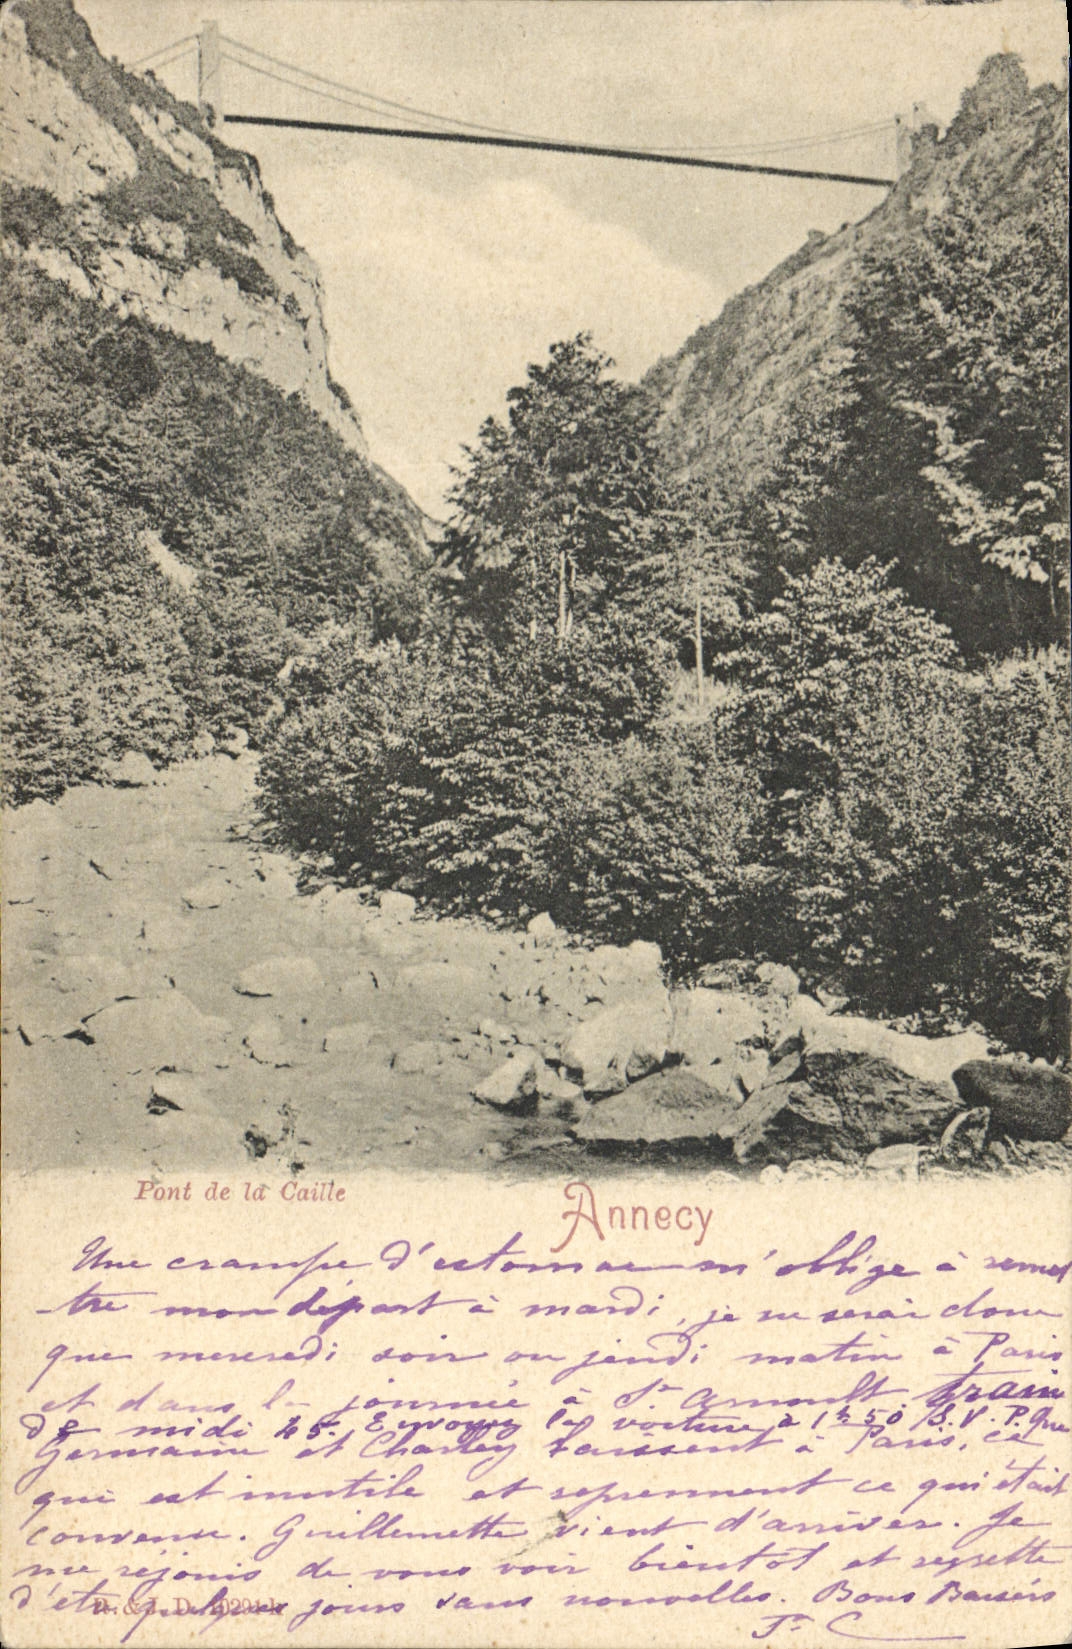 Pont de la Caille
Annecy
Une crampe d'estomac m'oblige à remet
tre mon départ à mardi, je ne serai donc
que mercredi soir ou jeudi matin à Paris
et dans la journée à St Arnoult train
de midi 45. Envoyez la voiture à 1h 50 S.V.P. Que
Germaine et Charley laissent à Paris, ce
qui est inutile et reprennent ce qui était
convenu. Guillemette vient d'arriver. Je
me réjouis de vous voir bientôt et regrette
d'etre quelques jours sans nouvelles. Bons Baisers